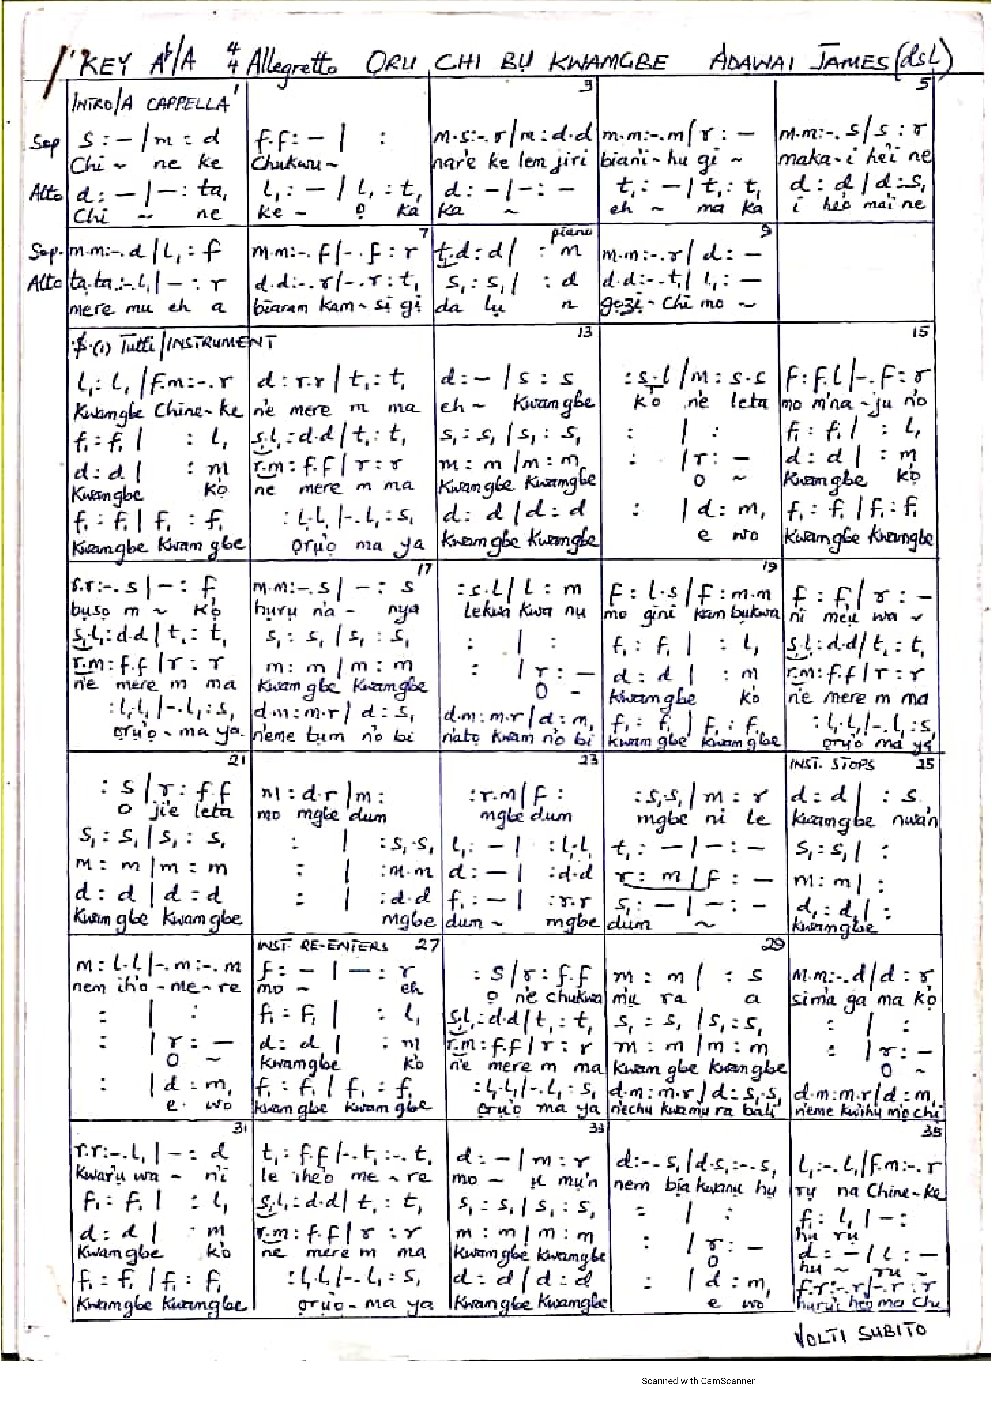 KEY Ab/A 4/4 Allegretto ORU CHI BU KWAMGBE ADAWAI JAMES (dsL)
INTRO/A CAPPELLA 3 5
Sop s : – / m : d f.f : – / : m.s:-.r / m : d.d m.m:-.m / r : – m.m:-.s / s : r
Chi ~ ne ke Chukwu ~ nar'e ke lem jiri biani ~ hu gi ~ maka-i hei ne
Alto d : – / – : ta, l, : – / l, : t, d : – / – : – t, : – / t, : t, d : d / d : s,
Chi ~ ne ke – o ka ka ~ eh ~ ma ka i heo mai ne
7 piano 9
Sop. m.m:-.d / l, : f m.m:-.f / -.f : r t,.d : d / : m m.m:-.r / d : –
Alto ta,.ta,:-.l, / – : r d.d:-.r / -.r : t, s, : s, / : d d.d:-.t, / l, : –
mere mu eh a biaram kam ~ si gi da lu n gozi - Chi mo ~
$.(1) Tutti/INSTRUMENT 13 15
l, : l, / f.m:-.r d : r.r / t, : t, d : – / s : s : s.l / m : s.s f : f.l / -.f : r
Kwamgbe Chine-ke n'e mere m ma eh ~ Kwamgbe k'o n'e leta mo m'na-ju n'o
f, : f, / : l, s,.l, : d.d / t, : t, s, : s, / s, : s, : / : f, : f, / : l,
d : d / : m r.m : f.f / r : r m : m / m : m : / r : – d : d / : m
Kwamgbe Ko ne mere m ma Kwamgbe Kwamgbe O ~ Kwamgbe ko
f, : f, / f, : f, : l,.l, / -.l, : s, d : d / d : d : / d : m, f, : f, / f, : f,
Kwamgbe Kwamgbe oru'o ma ya Kwamgbe Kwamgbe e wo Kwamgbe Kwamgbe
17 19
r.r:-.s / – : f m.m:-.s / – : s : s.l / l : m f : l.s / f : m.m f : f / r : –
buso m ~ Ko huru n'a - nya lekwa kwa nu mo gini kam bukwa ni meu wa ~
s,.l, : d.d / t, : t, s, : s, / s, : s, : / : f, : f, / : l, s,.l, : d.d / t, : t,
r.m : f.f / r : r m : m / m : m : / r : – d : d / : m r.m : f.f / r : r
n'e mere m ma Kwamgbe Kwamgbe O – Kwamgbe ko n'e mere m ma
: l,.l, / -.l, : s, d.m : m.r / d : s, d.m : m.r / d : m, f, : f, / f, : f, : l,.l, / -.l, : s,
oru'o - ma ya. n'eme bum n'o bi n'ato kwam n'o bi Kwamgbe Kwamgbe oru'o ma ya
21 23 INST. STOPS 25
: s / r : f.f m : d.r / m : : r.m / f : : s,.s, / m : r d : d / : s
O ji'e leta mo mgbe dum mgbe dum mgbe ni le Kwamgbe nwan
s, : s, / s, : s, : / : s,.s, l, : – / : l,.l, t, : – / – : – s, : s, / :
m : m / m : m : / : m.m d : – / : d.d r : m / f : – m : m / :
d : d / d : d : / : d.d f, : – / : r.r s, : – / – : – d, : d, / :
Kwamgbe Kwamgbe mgbe dum ~ mgbe dum ~ Kwamgbe
INST. RE-ENTERS 27 29
m : l.l / -.m:-.m f : – / – : r : s / r : f.f m : m / : s m.m:-.d / d : r
nem iho - me - re mo ~ eh o n'e chukwu mu ra a sima ga ma ko
: / : f, : f, / : l, s,.l, : d.d / t, : t, s, : s, / s, : s, : / :
: / r : – d : d / : m r.m : f.f / r : r m : m / m : m : / r : –
O ~ Kwamgbe ko n'e mere m ma Kwamgbe Kwangbe O ~
: / d : m, f, : f, / f, : f, : l,.l, / -.l, : s, d.m : m.r / d : s,.s, d.m : m.r / d : m,
e wo Kwamgbe Kwamgbe oru'o ma ya n'echu kwamu ra bali n'eme kwihu mo chi
31 33 35
r.r:-.l, / – : d t, : f.f / -.t,:-.t, d : – / m : r d:-.s, / d.s,:-.s, l,:-.l, / f.m:-.r
Kwaru wa - n'i le iheo me - re mo ~ u mu'n nem bia kwanu hu ru na Chine-ke
f, : f, / : l, s,.l, : d.d / t, : t, s, : s, / s, : s, : / : f, : l, / – :
hu ru
d : d / : m r.m : f.f / r : r m : m / m : m : / r : – d : – / l : –
Kwamgbe ko ne mere m ma Kwamgbe Kwamgbe O hu ~ ru ~
f, : f, / f, : f, : l,.l, / -.l, : s, d : d / d : d : / d : m, f.r:-.r / -.r : r
Kwamgbe Kwamgbe oru'o - ma ya Kwamgbe Kwamgbe e wo huru heo ma chu
VOLTI SUBITO
Scanned with CamScanner